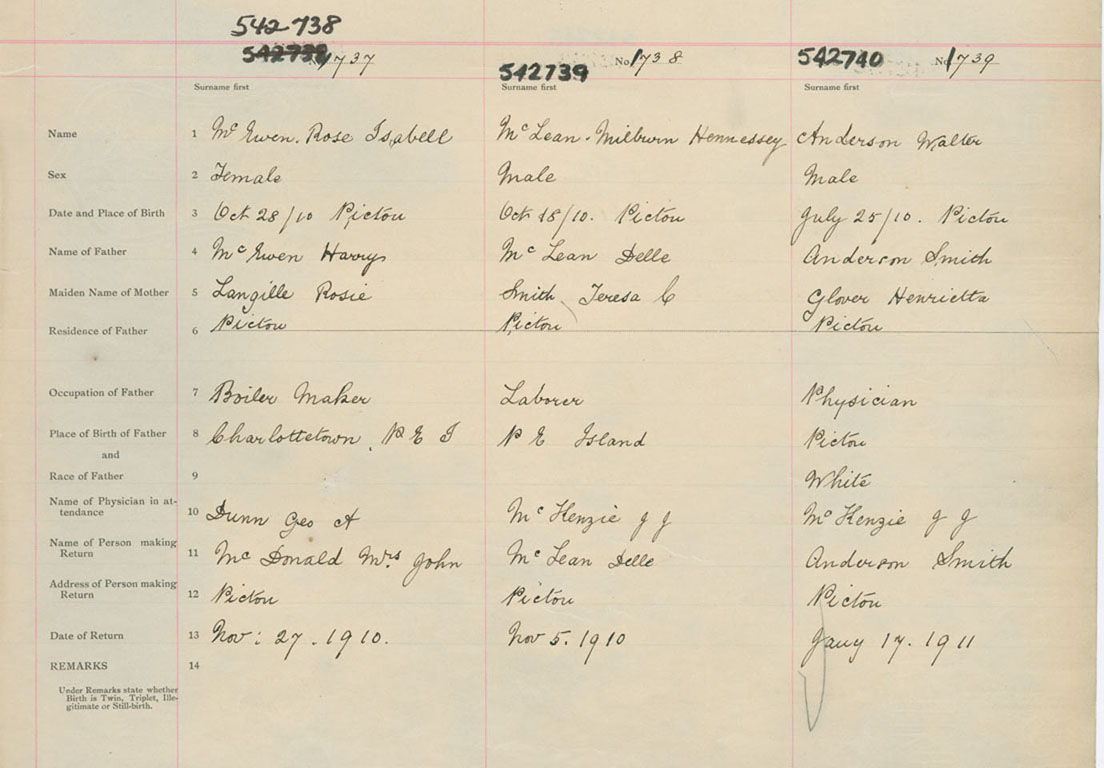 542738
542738 No 1737 542739 No 1738 542740 No 1739
Surname first Surname first Surname first
Name 1 McEwen. Rose Isabell McLean. Milburn Hennessey Anderson Walter
Sex 2 Female Male Male
Date and Place of Birth 3 Oct 28/10 Pictou Oct 18/10. Pictou July 25/10. Pictou
Name of Father 4 McEwen Harry McLean Delle Anderson Smith
Maiden Name of Mother 5 Langille Rosie Smith Teresa C Glover Henrietta
Residence of Father 6 Pictou Pictou Pictou
Occupation of Father 7 Boiler Maker Laborer Physician
Place of Birth of Father 8 Charlottetown, P E I P E Island Pictou
and
Race of Father 9 White
Name of Physician in at-
tendance 10 Dunn Geo A McKenzie J J McKenzie J J
Name of Person making
Return 11 McDonald Mrs John McLean Delle Anderson Smith
Address of Person making
Return 12 Pictou Pictou Pictou
Date of Return 13 Nov: 27. 1910. Nov 5. 1910 Jany 17. 1911
REMARKS 14
Under Remarks state whether
Birth is Twin, Triplet, Ille-
gitimate or Still-birth.